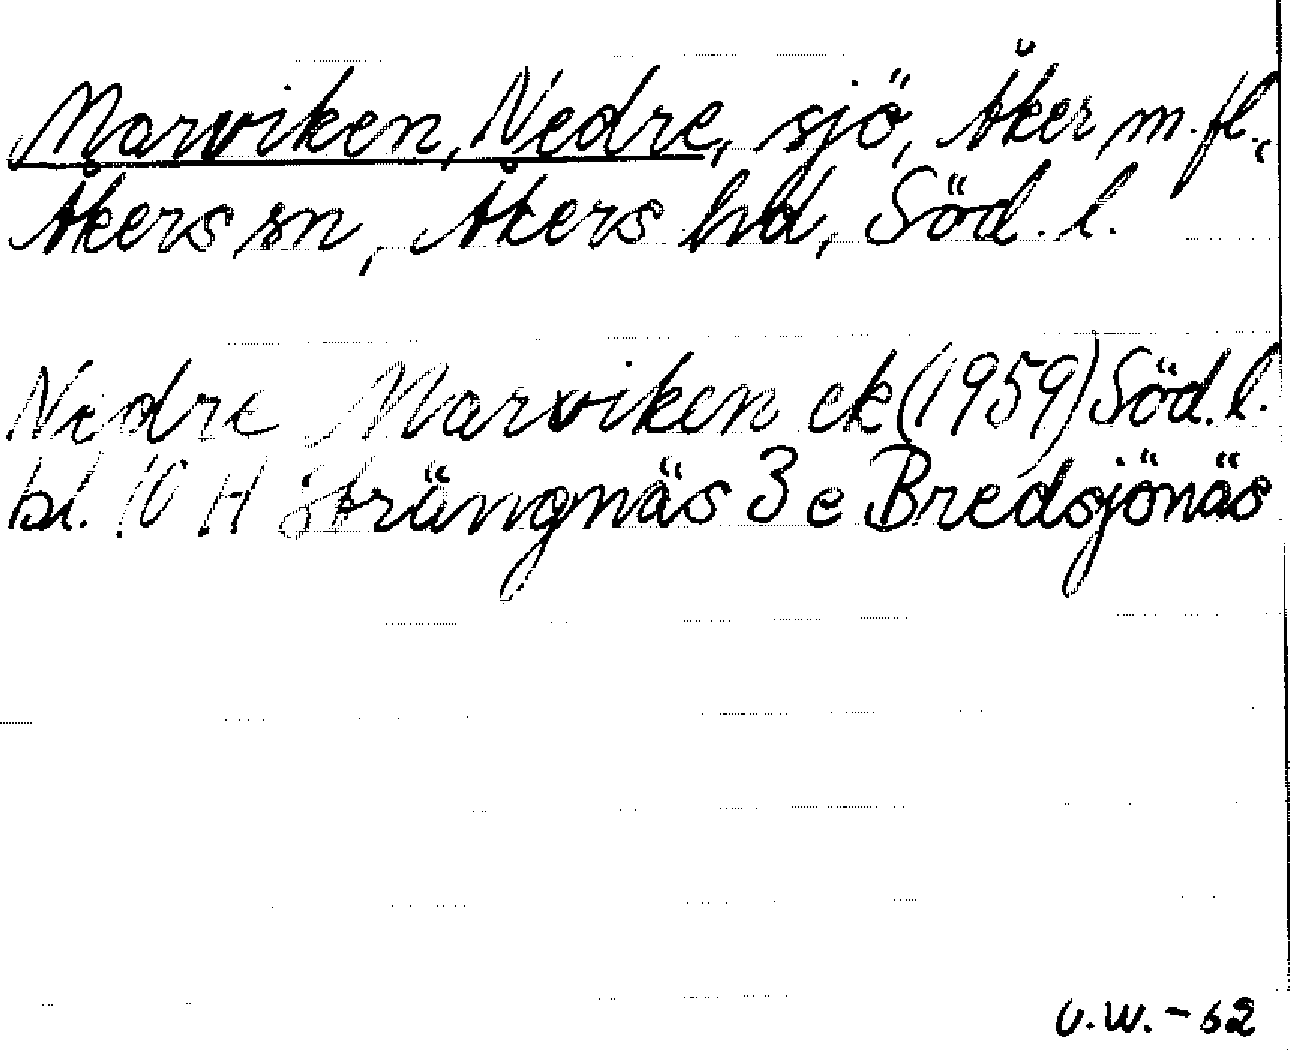 Marviken, Nedre, sjö, Åker m.fl.,
Åkers sn, Åkers hd, Söd. l.
Nedre Marviken ek (1959) Söd. l.
bl. 10 H Strängnäs 3 e Bredsjönäs
U.W. - 62